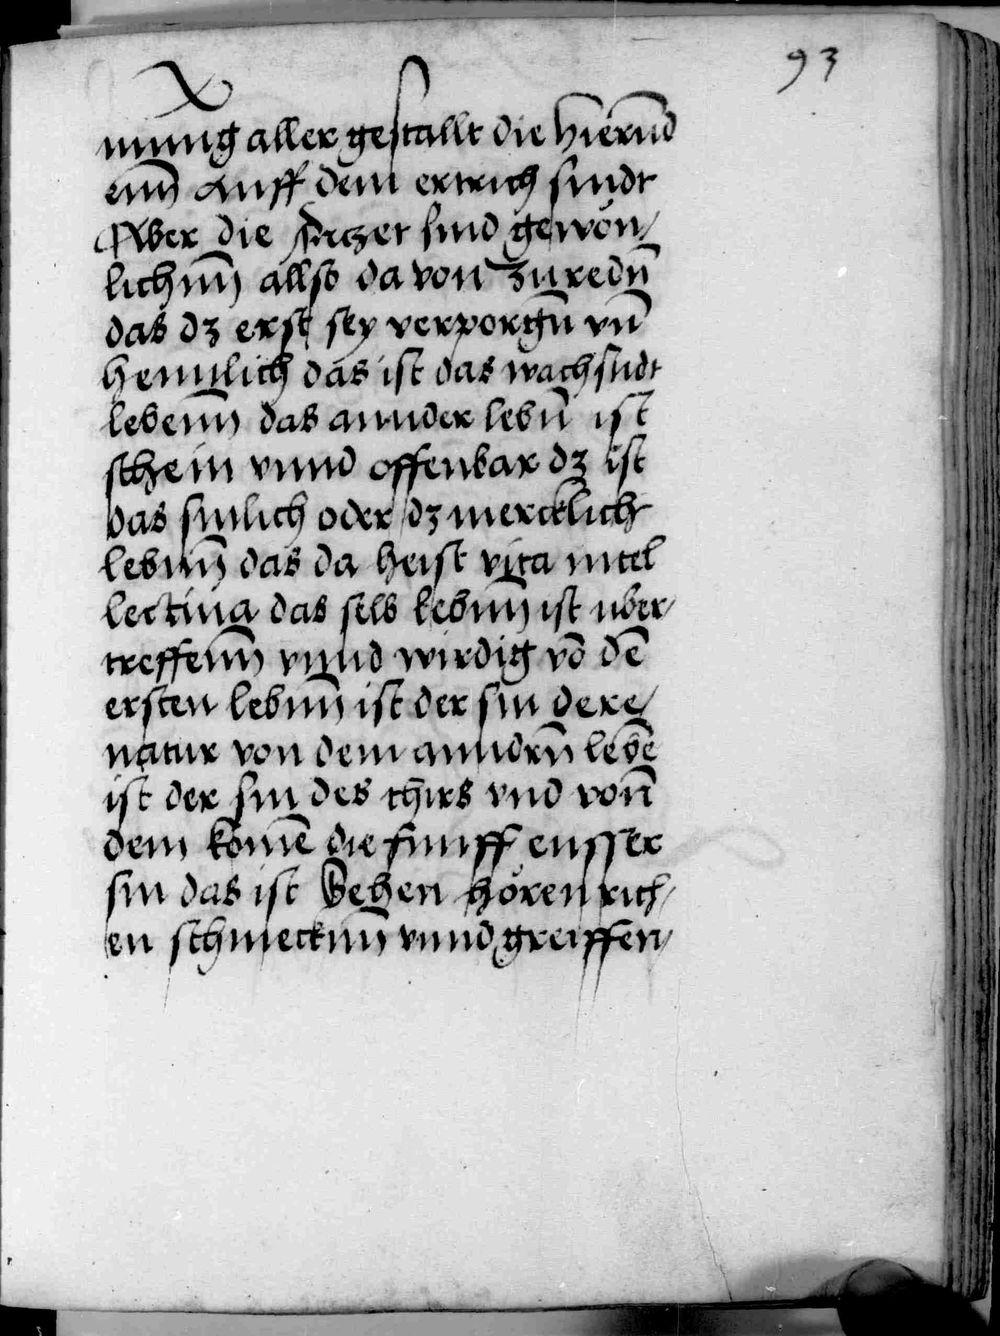 93
nnung aller gestallt die hierund
enn auff dem ertrich sindt
Aber die artzet sind gewon/
lichnn̄ allso da von zu redn̄
das dz erst sey verporgn̄ vn̄
hemlich das ist das wachsndt
lebenn das annder lebn̄ ist
schein vnnd offenbar dz ist
das sinlich oder dz mercklich
lebnn̄ das da heist vita intel
lectiua das selb lebnn̄ ist uber/
treffenn̄ vnnd wirdig vō dē
ersten lebnn̄ ist der sin dere/
natur von dem anndrn̄ lebē
ist der sin des thirs vnd vonn̄
dem komē die funff eusser
sin das ist Sehen hören rich/
en schmecknn̄ vnnd greiffen/